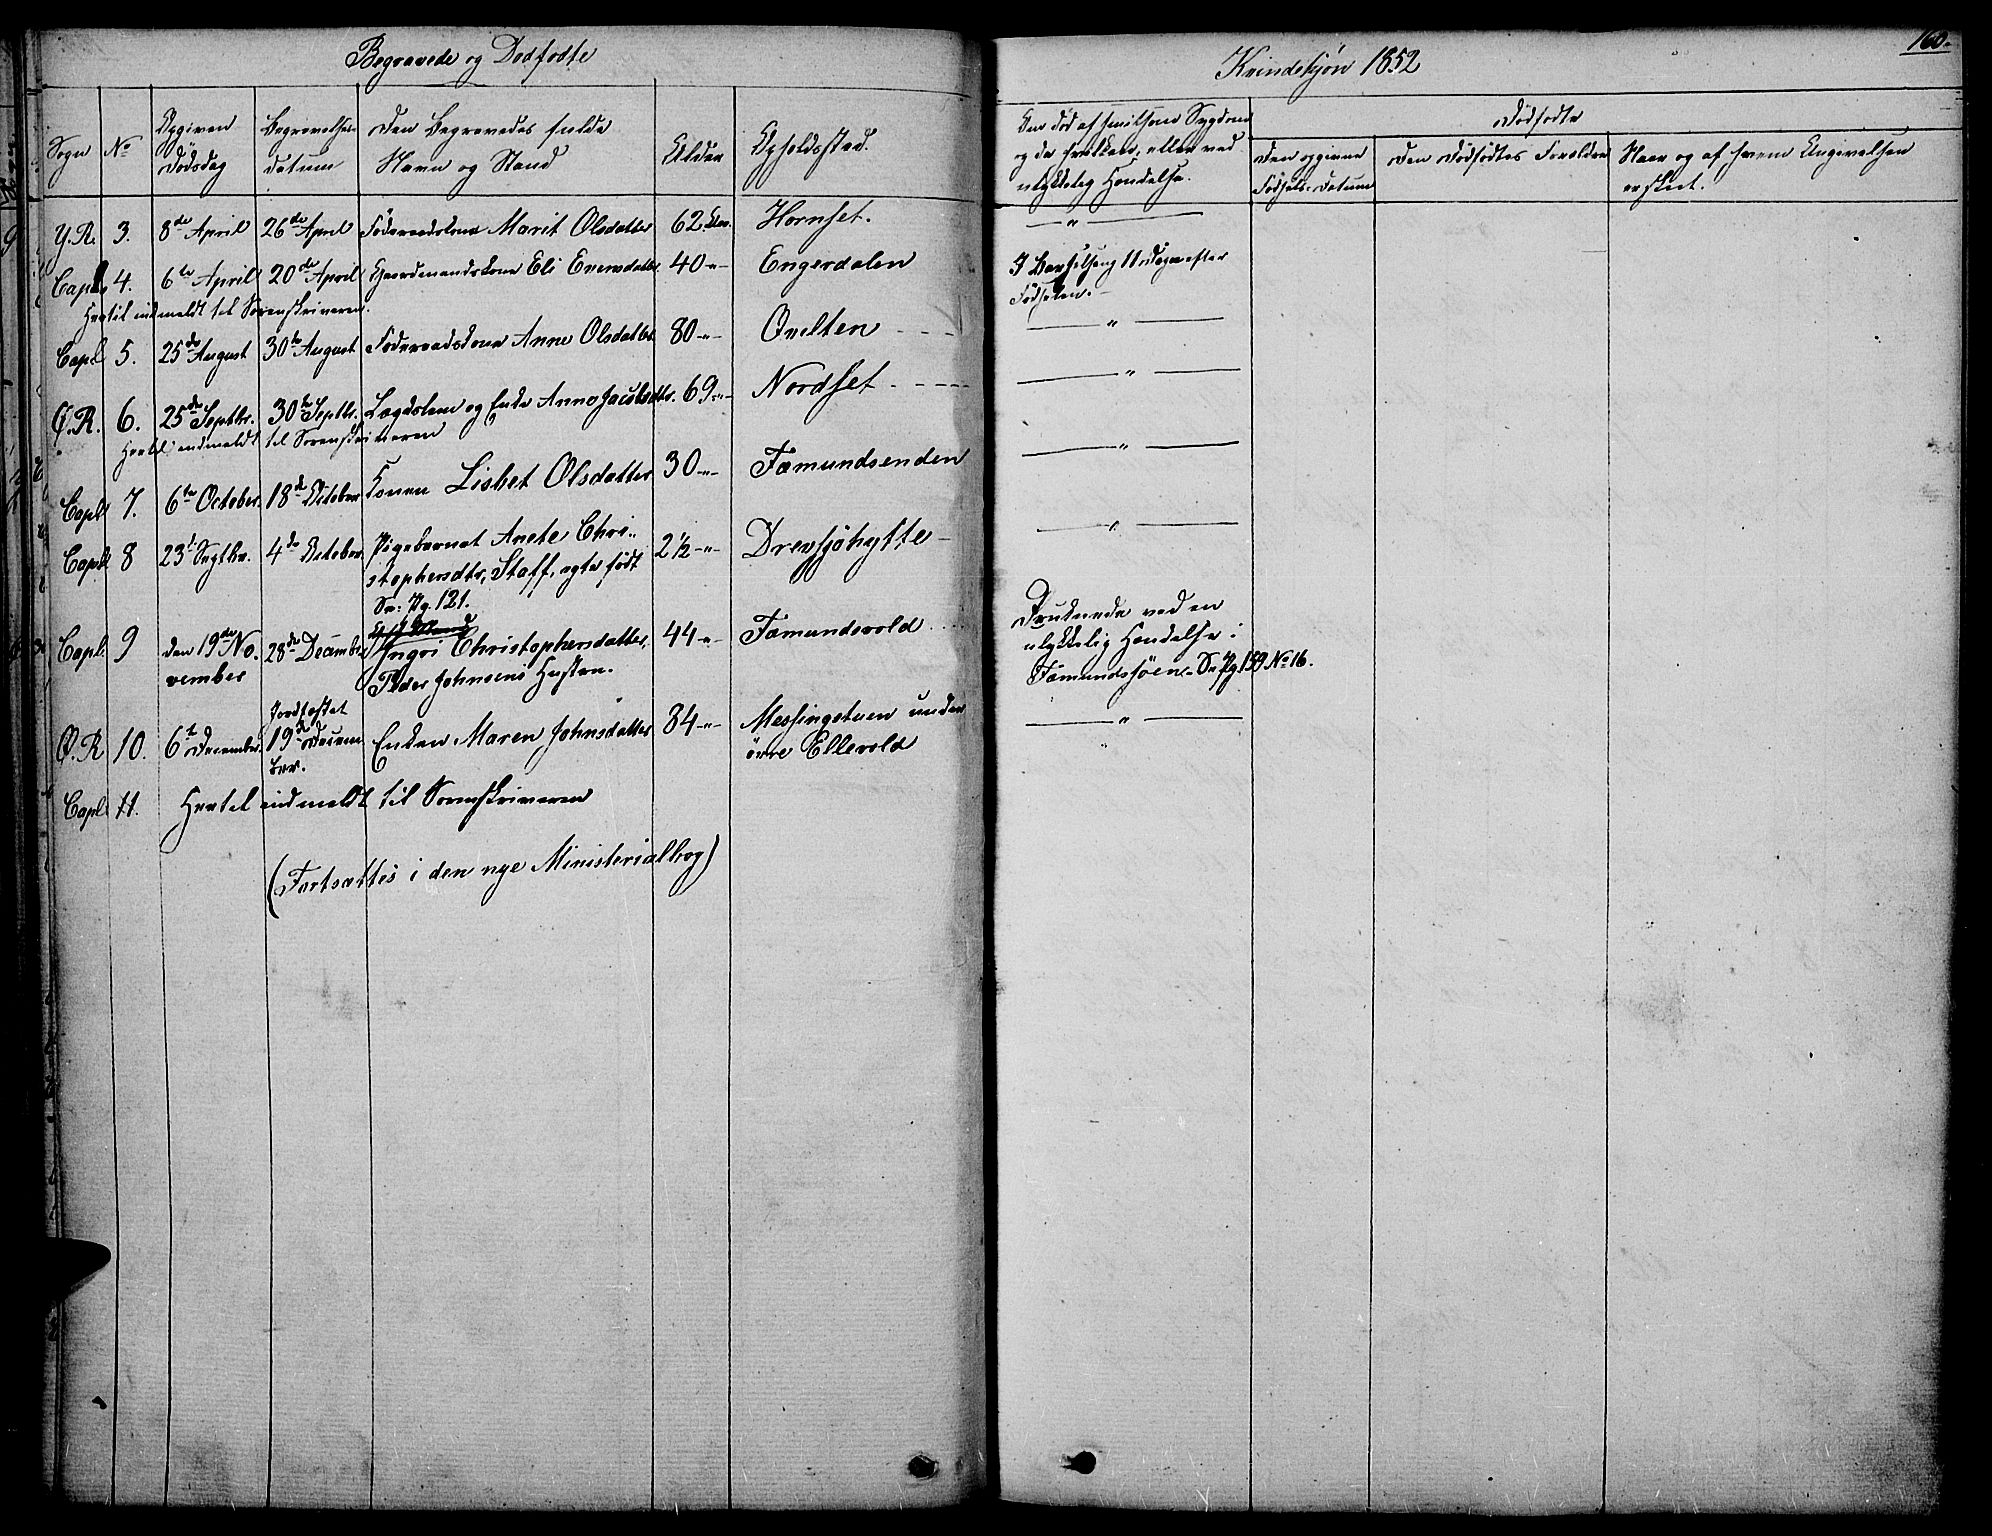 Begravede og Dødfødte
Kvindekjøn 1852
160.
Sogn
No
Opgiven Dødsdag
Begravelses datum
Den Begravedes fulde Navn og Stand
Alder
Opholdssted.
Om død af smitsom Sygdom og da hvilken, eller ved ulykkelig Hændelse.
Dødfødte
Den opgivne Fødsels-Datum
Den Dødfødtes Forældre
Naar og af hvem Angivelsen er skeet.
Y.R. 3. 8de April 26de April Føderaadskone Marit Olsdatter 62 Aar. Hornset. — " —
Capl. 4. 6te April 20de April Gaardmandskone Eli Eversdatter 40 -"- Engerdalen I Barselseng 11 Dage efter
Fødselen.
Hertil indmeldt til Sorenskriveren.
Capl 5. 25de August 30te August Føderaadskone Anne Olsdatter 80 -"- Qvelten — " —
Ø.R. 6. 25de Septbr. 30te Septbr. Lægdslem og Enke Anne Jacobsdtr. 69 -"- Nordset — " —
Hertil indmeldt til Sorenskriveren
Capl 7. 6te October. 18de October Konen Lisbet Olsdatter 30 -"- Fæmundsenden — " —
Capl 8 23d Septbr. 4de October Pigebarnet Anete Chri-
stophersdtr, Staff, ægte født 2 1/2 -"- Drevsjøhytte — " —
Se: Pg. 121.
Capl. 9 den 19de No-
vember 28de December Ingri Christophersdatter,
Peder Johnsens Hustru. 44 -"- Fæmundsvold
Druknede ved en
ulykkelig Hændelse i
Fæmundssjøen. Se Pg. 159 No 16.
Ø.R 10. 6te December. Jordfæstet
19de Decem
ber. Enken Maren Johnsdatter 84 -"- Messingstuen under
øvre Ellevold — " —
Capl 11. Hertil indmeldt til Sorenskriveren
(Fortsættes i den nye Ministerialbog)